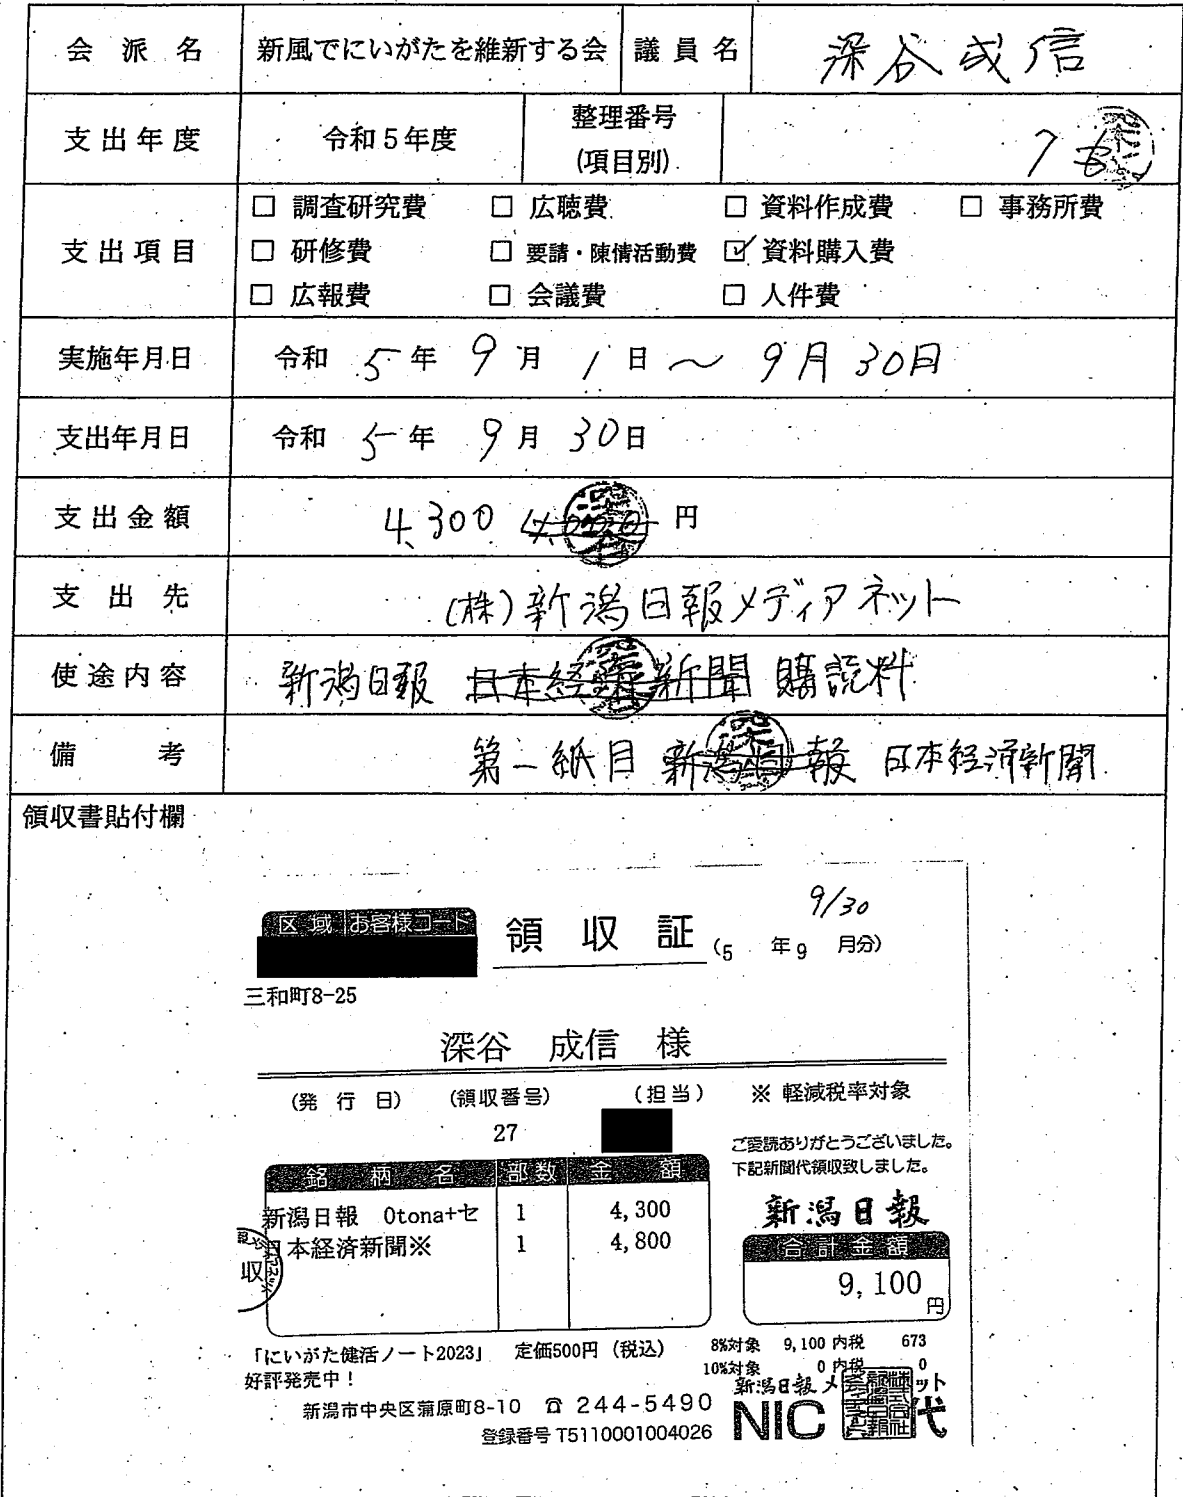 会派名 新風でにいがたを維新する会 議員名 深谷成信
支出年度 令和5年度 整理番号(項目別) 7
支出項目
□ 調査研究費 □ 広聴費 □ 資料作成費 □ 事務所費
□ 研修費 □ 要請・陳情活動費 ☑ 資料購入費
□ 広報費 □ 会議費 □ 人件費
実施年月日 令和 5年 9月 1日 ~ 9月30日
支出年月日 令和 5年 9月 30日
支出金額 4,300 円
支出先 (株)新潟日報メディアネット
使途内容 新潟日報 日本経済新聞 購読料
備考 第一紙目 新潟日報 日本経済新聞
領収書貼付欄
9/30
区域 お客様コード 領収証 (5 年 9 月分)
三和町8-25
深谷 成信 様
(発行日) (領収番号) (担当) ※ 軽減税率対象
27
ご愛読ありがとうございました。
下記新聞代領収致しました。
銘柄名 部数 金額
新潟日報 Otona+セ 1 4,300
日本経済新聞※ 1 4,800
新潟日報
合計金額
9,100円
8%対象 9,100 内税 673
10%対象 0 内税 0
「にいがた健活ノート2023」 定価500円(税込)
好評発売中!
新潟市中央区蒲原町8-10 ☎ 244-5490
登録番号 T5110001004026
新潟日報メ ット
NIC 代